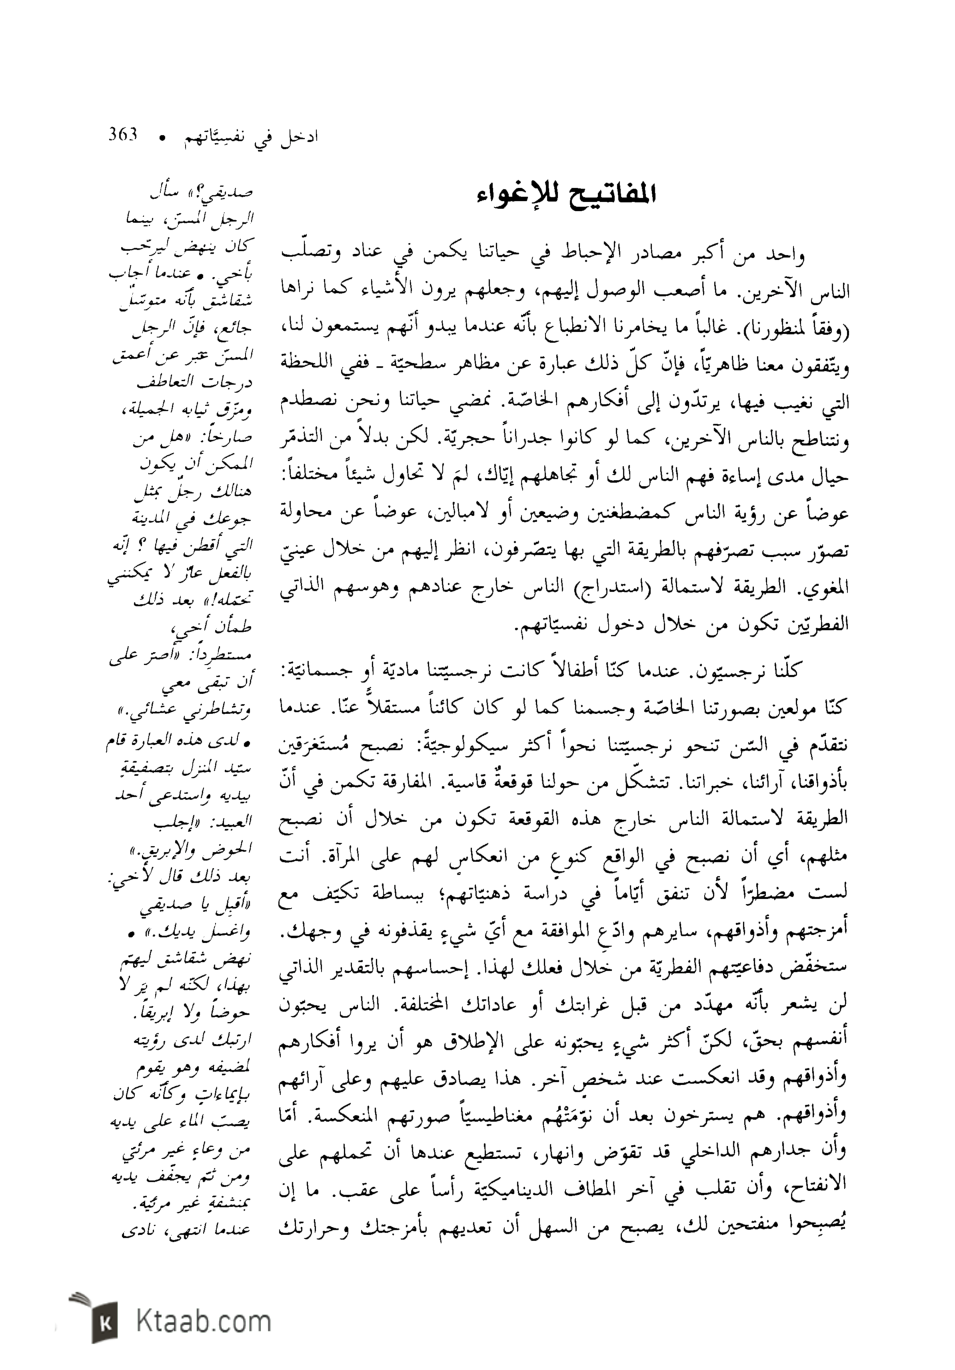 ادخل في نفسِيَّاتهم • 363
المفاتيح للإغواء
واحد من أكبر مصادر الإحباط في حياتنا يكمن في عناد وتصلّب
الناس الآخرين. ما أصعب الوصول إليهم، وجعلهم يرون الأشياء كما نراها
(وفقاً لمنظورنا). غالباً ما يخامرنا الانطباع بأنّه عندما يبدو أنّهم يستمعون لنا،
ويتّفقون معنا ظاهريّاً، فإنّ كلّ ذلك عبارة عن مظاهر سطحيّة ـ ففي اللحظة
التي نغيب فيها، يرتدّون إلى أفكارهم الخاصّة. نمضي حياتنا ونحن نصطدم
ونتناطح بالناس الآخرين، كما لو كانوا جدراناً حجريّة. لكن بدلاً من التذمّر
حيال مدى إساءة فهم الناس لك أو تجاهلهم إيّاك، لمَ لا تحاول شيئاً مختلفاً:
عوضاً عن رؤية الناس كمضطغنين وضيعين أو لامبالين، عوضاً عن محاولة
تصوّر سبب تصرّفهم بالطريقة التي بها يتصّرفون، انظر إليهم من خلال عينيّ
المغوي. الطريقة لاستمالة (استدراج) الناس خارج عنادهم وهوسهم الذاتي
الفطريّين تكون من خلال دخول نفسيّاتهم.
كلّنا نرجسيّون. عندما كنّا أطفالاً كانت نرجسيّتنا ماديّة أو جسمانية:
كنّا مولعين بصورتنا الخاصّة وجسمنا كما لو كان كائناً مستقلاًّ عنّا. عندما
نتقدّم في السّن تنحو نرجسيّتنا نحواً أكثر سيكولوجيّةً: نصبح مُستَغرَقين
بأذواقنا، آرائنا، خبراتنا. تتشكّل من حولنا قوقعةٌ قاسية. المفارقة تكمن في أنّ
الطريقة لاستمالة الناس خارج هذه القوقعة تكون من خلال أن نصبح
مثلهم، أي أن نصبح في الواقع كنوعٍ من انعكاسٍ لهم على المرآة. أنت
لست مضطرّاً لأن تنفق أيّاماً في دراسة ذهنيّاتهم؛ ببساطة تكيّف مع
أمزجتهم وأذواقهم، سايرهم وادّعِ الموافقة مع أيّ شيءٍ يقذفونه في وجهك.
ستخفّض دفاعيّتهم الفطريّة من خلال فعلك لهذا. إحساسهم بالتقدير الذاتي
لن يشعر بأنّه مهدّد من قبل غرابتك أو عاداتك المختلفة. الناس يحبّون
أنفسهم بحقّ، لكنّ أكثر شيءٍ يحبّونه على الإطلاق هو أن يروا أفكارهم
وأذواقهم وقد انعكست عند شخصٍ آخر. هذا يصادق عليهم وعلى آرائهم
وأذواقهم. هم يسترخون بعد أن نوّمَتْهُم مغناطيسيّاً صورتهم المنعكسة. أمّا
وأن جدارهم الداخلي قد تقوّض وانهار، تستطيع عندها أن تحملهم على
الانفتاح، وأن تقلب في آخر المطاف الديناميكيّة رأساً على عقب. ما إن
يُصبِحوا منفتحين لك، يصبح من السهل أن تعديهم بأمزجتك وحرارتك
صديقي؟» سأل
الرجل المسنّ، بينما
كان ينهض ليرحّب
بأخي. • عندما أجاب
شقاشق بأنّه متوسّلٌ
جائع، فإنّ الرجل
المسنّ عبّر عن أعمق
درجات التعاطف
ومزّق ثيابه الجميلة،
صارخاً: «هل من
الممكن أن يكون
هنالك رجلٌ بمثل
جوعك في المدينة
التي أقطن فيها ؟ إنّه
بالفعل عارٌ لا يمكنني
تحمّله!» بعد ذلك
طمأن أخي،
مستطرِداً: «أصرّ على
أن تبقى معي
وتشاطرني عشائي.»
• لدى هذه العبارة قام
سيّد المنزل بتصفيقةٍ
بيديه واستدعى أحد
العبيد: «إجلب
الحوض والإبريق.»
بعد ذلك قال لأخي:
«أقبِل يا صديقي
واغسل يديك.» •
نهض شقاشق ليهتمّ
بهذا، لكنّه لم يَرَ لا
حوضاً ولا إبريقاً.
ارتبك لدى رؤيته
لمضيفه وهو يقوم
بإيماءاتٍ وكأنّه كان
يصبّ الماء على يديه
من وعاءٍ غير مرئي
ومن ثمّ يجفّف يديه
بمنشفةٍ غير مرئيّة.
عندما انتهى، نادى
Ktaab.com